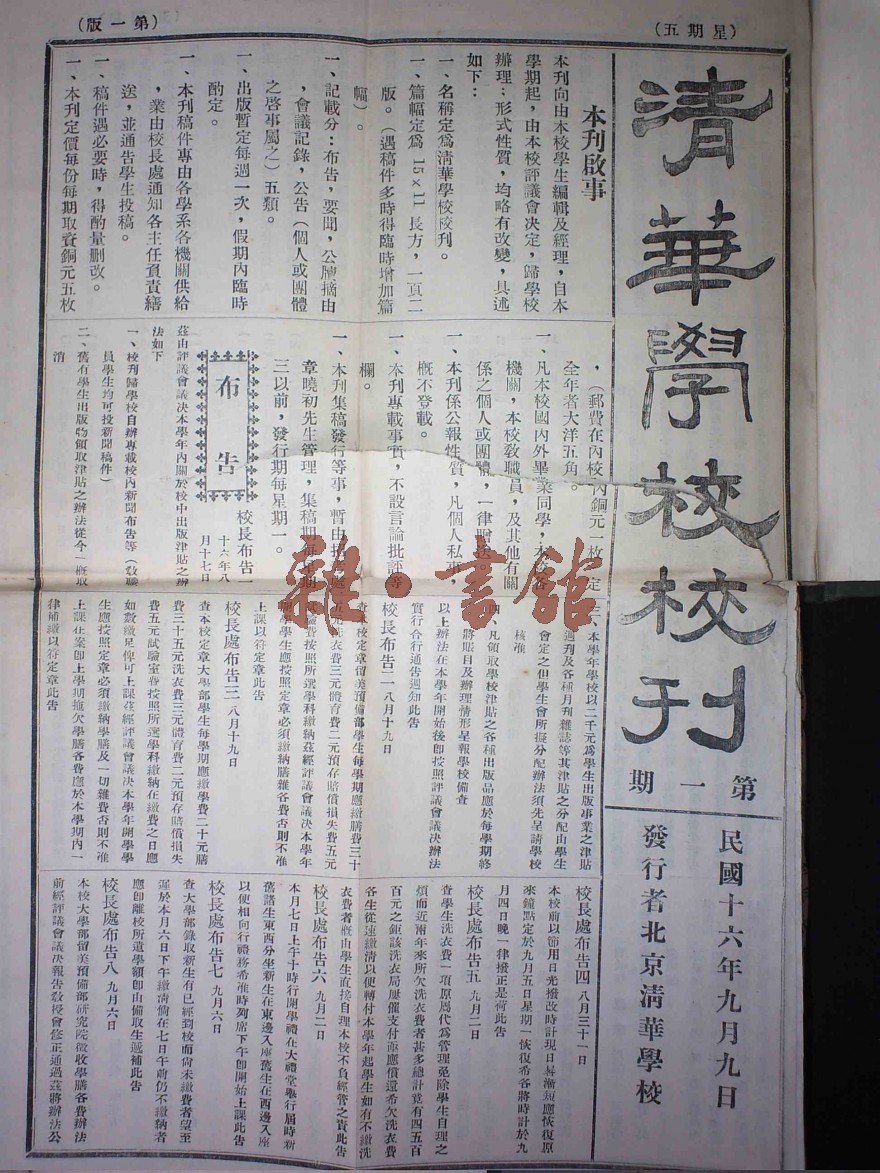 （星期五）
（第一版）
清華學校校刊
第一期
民國十六年九月九日
發行者北京清華學校
本刊啟事
本刊向由本校學生編輯及經理，自本
學期起，由本校評議會决定，歸學校
辦理：形式性質，均略有改變，具述
如下：
一、名稱定爲清華學校校刊。
一、篇幅定爲 15x11 長方，一頁二
版。（遇稿件多時得臨時增加篇
幅）。
一、記載分：布告，要聞，公牘摘由
，會議記錄，公告（個人或團體
之啓事屬之）五類。
一、出版暫定每週一次，假期內臨時
酌定。
一、本刊稿件專由各學系各機關供給
，業由校長處通知各主任負責繕
送，並通告學生投稿。
一、稿件遇必要時，得酌量删改。
一、本刊定價每份每期取資銅元五枚
，（郵費在內校內銅元一枚）定
全年者大洋五角。
一、凡本校國內外畢業同學，本校各
機關，本校敎職員，及其他有關
係之個人或團體，一律贈送。
一、本刊係公報性質，凡個人私事，
概不登載。
一、本刊專載事實，不設言論批評等
欄。
一、本刊集稿發行等事，暫由
章曉初先生管理，集稿期每星期
三以前，發行期每星期一。
布告
校長布告一
十六年八
月十七日
茲由評議會議决本學年內關於校中出版津貼之辦
法如下
一、校刊歸學校自辦專載校內新聞布告等（敎職
員學生均可投新聞稿件）
二、舊有學生出版物領取津貼之辦法從今一概取
消
三、本學年學校以二千元爲學生出版事業之津貼
週刊及各種月刊雜誌等其津貼之分配由學生
會定之但學生會所擬分配辦法須先呈請學校
核准
四、凡領取學校津貼之各種出版品應於每學期終
將賬目及辦理情形呈報學校備查
以上辦法在本學年開始後卽按照評議會議决辦法
實行合行通告週知此告
校長布告二 八月十九日
查本校定章留美預備部學生每學期應繳膳費三十
五元洗衣費三元體育費二元預存賠償損失費五元
試驗費按照所選學科繳納茲經評議會議决本學年
開學學生應按照定章必須繳納膳雜各費否則不准
上課以符定章此告
校長處布告三 八月十九日
查本校定章大學部學生每學期應繳學費二十元膳
費三十五元洗衣費三元體育費二元預存賠償損失
費五元試驗室費按照所選學科繳納在繳費之日應
如數繳足俾可上課茲經評議會議决本學年開學學
生應按照定章必須繳納學膳及一切雜費否則不准
上課在案卽上學期拖欠學膳各費應於本學期內一
律補繳以符定章此告
校長處布告四 八月三十一日
本校前以節用日光撥改時計現日晷漸短應恢復原
來鐘點定於九月五日星期一恢復希各將時計於九
月四日晚一律撥正是荷此告
校長處布告五 九月二日
查學生洗衣費一項原爲代爲管理免除學生自理之
煩而近兩年來所欠洗衣費者甚多總計竟有四五百
百元之鉅該洗衣局屢催支付亟應償還希欠洗衣費
各生從速繳清以便轉付本學年起學生如有不繳洗
衣費者概由學生直接自理本校不負經管之責此告
校長處布告六 九月二日
本月七日上午十時行開學禮在大禮堂舉行屆時新
舊諸生東西分坐新生在東邊入座舊生在西邊入座
以便相向行禮務希准時列席下午卽開始上課此告
校長處布告七 九月六日
查大學部錄取新生有已經到校而尚未繳費者望至
遲於本月六日下午繳清倘在七日午前仍不繳納者
應卽離校所遺學額卽由備取生遞補此告
校長處布告八 九月六日
本校大學部留美預備部研究院徵收學膳各費辦法
前經評議會議决報告敎授會修正通過茲將辦法公
雜·書館